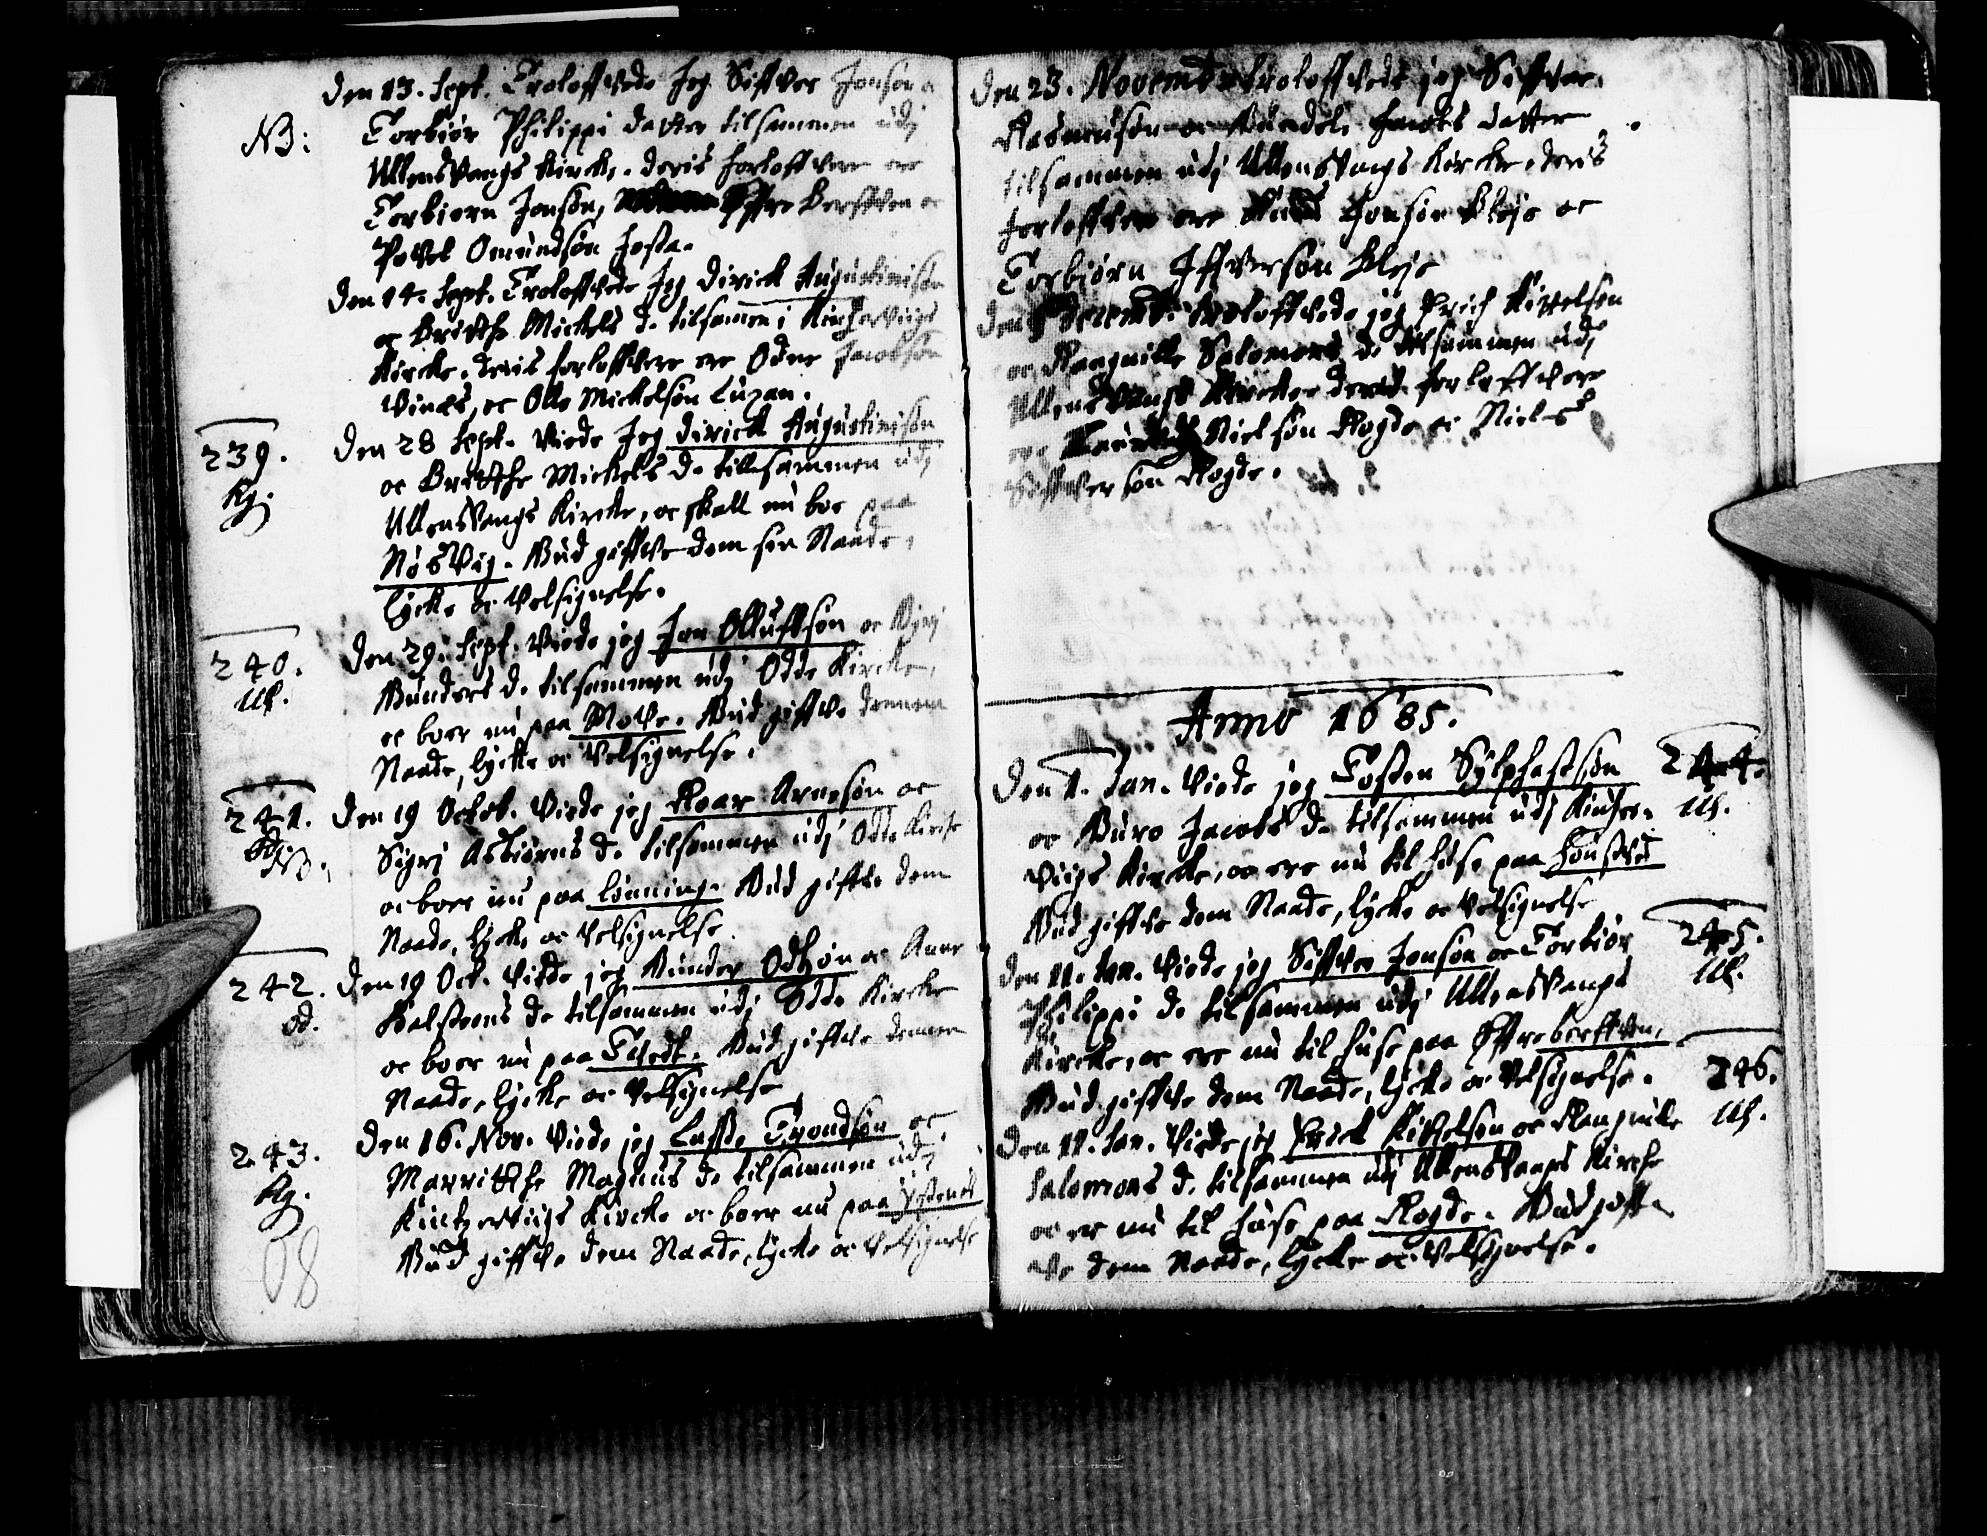 Den 13. Sept. Troloffvede Jeg Siffver Jonsøn oc
NB: Torbiør Philippi datter tilsammen udj
Ullensvangs Kircke, deris forloffvere ere
Torbiørn Jonsøn, Øffre Børffven oc
Povel Omundsøn Josta.
Den 14. Sept. Troloffvede Jeg Dirick Augustinisøn
oc Britthe Mickels d. tilsamen i Kinserviigs
Kircke. deris forloffvere ere Odne Jacobsøn
Vinæs, oc Olle Mickelsøn
239. Den 28 Sept. Viede Jeg Dirick Augustinisøn
Kg. oc Britthe Mickels d. tillsammen udj
Ullensvangs Kircke, oc skall nu boe paa
Nøsvig. Gud giffve dem sin Naade,
lycke oc Velsignelse.
240. Den 29. Sept. Viede jeg Jon Olluffsøn oc
Ull. Gunders d. tilsammen udj Odde Kircke,
oc boer nu paa Move. Gud giffve dennem
Naade, lycke oc Velsignelse.
241. Den 19 Octob. Viede jeg Roar Arnesøn oc
Kg. Sigrj Asbiørns d. tilsammen udj Odde Kircke
NB. oc boer nu paa Lønning. Gud giffve dem
Naade, lycke oc Velsignelse.
242. Den 19 Oct. Viede jeg Gunder Odtzøn oc Anne
Od. Halsteens d. tilsammen udj Odde Kircke
oc boer nu paa Gud giffve dennem
Naade, lycke oc Velsignelse
243. Den 16. Nov. Viede jeg Lasse Trondsøn oc
Kg. Marritthe Magnus d. tilsammen udj
Kintzerviigs Kircke oc boer nu paa
Gud giffve dem Naade, lycke oc Velsignelse
98
Den 23. Novemb. Troloffvede jeg Siffver
Rasmusøn oc datter
tilsammen udj Ullensvangs Kircke, deris
forloffvere ere Jonsøn Bleje oc
Torbiørn Iffversøn Bleje
Den Decemb. Troloffvede jeg Erich Kittelsøn
oc Rangnille Salomons d. tilsammen udj
Ullensvangs Kircke deris forloffvere
ere Nielsøn Rogde oc Niels
Siffversøn Rogde.
Anno 1685.
Den 1. Jan. Viede jeg Tosten Sylphastsøn 244.
oc Guro Jacobs d. tilsammen udj Kinser- Ull.
viigs Kircke, oc ere nu til huse paa
Gud giffve dem Naade, lycke oc Velsignelse
Den 11. Jan. Viede jeg Siffver Jonsøn oc Torbiør 245.
Philippi d. tilsammen udj Ullensvangs Ull.
Kircke, oc ere nu til huse paa Øffrebørffven,
Gud giffve dem Naade, lycke oc Velsignelse. 246.
Den 11. Jan. Viede jeg Erick Kittelsøn oc Rangnille Ull.
Salomons d. tilsammen udj Ullensvangs Kircke
oc er nu til huse paa Rogde. Gud giff-
ve dem Naade, lycke oc Velsignelse.